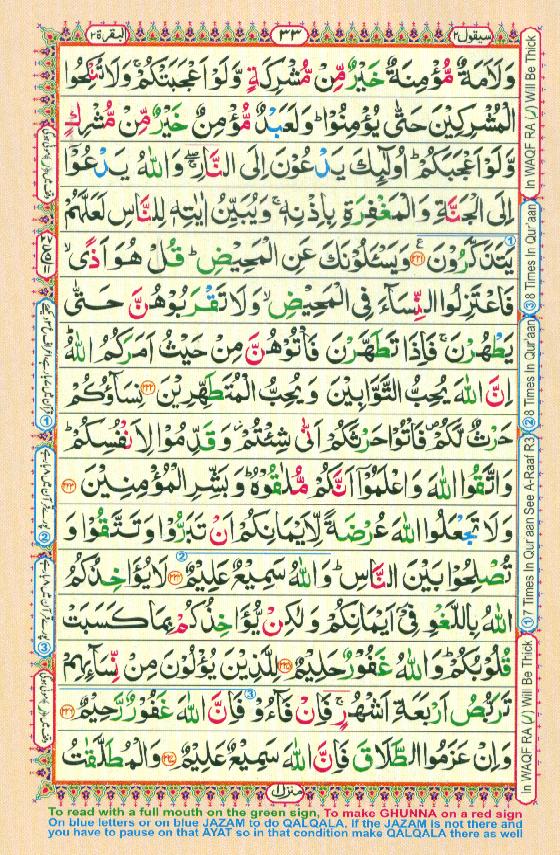 سيقول ٢
٣٣
البقرة ٢
وَلَاَمَةٌ مُّؤْمِنَةٌ خَيْرٌ مِّنْ مُّشْرِكَةٍ وَّلَوْ اَعْجَبَتْكُمْ ۚ وَلَا تُنْكِحُوا
الْمُشْرِكِيْنَ حَتّٰى يُؤْمِنُوْا ؕ وَلَعَبْدٌ مُّؤْمِنٌ خَيْرٌ مِّنْ مُّشْرِكٍ
وَّلَوْ اَعْجَبَكُمْ ؕ اُولٰٓئِكَ يَدْعُوْنَ اِلَى النَّارِ ۖۚ وَاللّٰهُ يَدْعُوْٓا
اِلَى الْجَنَّةِ وَالْمَغْفِرَةِ بِاِذْنِهٖ ۚ وَيُبَيِّنُ اٰيٰتِهٖ لِلنَّاسِ لَعَلَّهُمْ
يَتَذَكَّرُوْنَ ﴿۲۲۱﴾ ع وَيَسْـَٔلُوْنَكَ عَنِ الْمَحِيْضِ ؕ قُلْ هُوَ اَذًى ۙ
فَاعْتَزِلُوا النِّسَآءَ فِى الْمَحِيْضِ ۙ وَلَا تَقْرَبُوْهُنَّ حَتّٰى
يَطْهُرْنَ ۚ فَاِذَا تَطَهَّرْنَ فَاْتُوْهُنَّ مِنْ حَيْثُ اَمَرَكُمُ اللّٰهُ ؕ
اِنَّ اللّٰهَ يُحِبُّ التَّوَّابِيْنَ وَيُحِبُّ الْمُتَطَهِّرِيْنَ ﴿۲۲۲﴾ نِسَآؤُكُمْ
حَرْثٌ لَّكُمْ ۪ فَاْتُوْا حَرْثَكُمْ اَنّٰى شِئْتُمْ ۫ وَقَدِّمُوْا لِاَنْفُسِكُمْ ؕ
وَاتَّقُوا اللّٰهَ وَاعْلَمُوْٓا اَنَّكُمْ مُّلٰقُوْهُ ؕ وَبَشِّرِ الْمُؤْمِنِيْنَ ﴿۲۲۳﴾
وَلَا تَجْعَلُوا اللّٰهَ عُرْضَةً لِّاَيْمَانِكُمْ اَنْ تَبَرُّوْا وَتَتَّقُوْا وَ
تُصْلِحُوْا بَيْنَ النَّاسِ ؕ وَاللّٰهُ سَمِيْعٌ عَلِيْمٌ ﴿۲۲۴﴾ لَا يُؤَاخِذُكُمُ
اللّٰهُ بِاللَّغْوِ فِىْٓ اَيْمَانِكُمْ وَلٰكِنْ يُّؤَاخِذُكُمْ بِمَا كَسَبَتْ
قُلُوْبُكُمْ ؕ وَاللّٰهُ غَفُوْرٌ حَلِيْمٌ ﴿۲۲۵﴾ لِلَّذِيْنَ يُؤْلُوْنَ مِنْ نِّسَآئِهِمْ
تَرَبُّصُ اَرْبَعَةِ اَشْهُرٍ ۚ فَاِنْ فَآءُوْ فَاِنَّ اللّٰهَ غَفُوْرٌ رَّحِيْمٌ ﴿۲۲۶﴾
وَاِنْ عَزَمُوا الطَّلَاقَ فَاِنَّ اللّٰهَ سَمِيْعٌ عَلِيْمٌ ﴿۲۲۷﴾ وَالْمُطَلَّقٰتُ
منزل ١
In WAQF RA (ر) Will Be Thick
③8 Times In Qur'aan
②8 Times In Qur'aan See A-Raaf R3
①7 Times In Qur'aan
In WAQF RA (ر) Will Be Thick
To read with a full mouth on the green sign, To make GHUNNA on a red sign
On blue letters or on blue JAZAM to do QALQALA, If the JAZAM is not there and
you have to pause on that AYAT so in that condition make QALQALA there as well